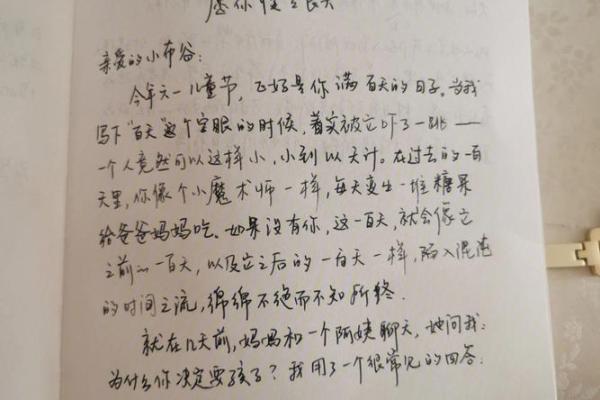 愿你慢慢长大
亲爱的小布谷：
今年六一儿童节，正好是你满百天的日子。当我
写下“百天”这个字眼的时候，着实被它吓了一跳——
一个人竟然可以这样小，小到以天计。在过去的一百
天里，你像个小魔术师一样，每天变出一堆糖果
给爸爸妈妈吃。如果没有你，这一百天，就会像它
之前的一百天，以及它之后的一百天一样，陷入混沌
的时间之流，绵绵不绝而不知所终.
就在几天前，妈妈和一个阿姨聊天，她问我：
为什么你决定要孩子？我用了一个很常见的回答：